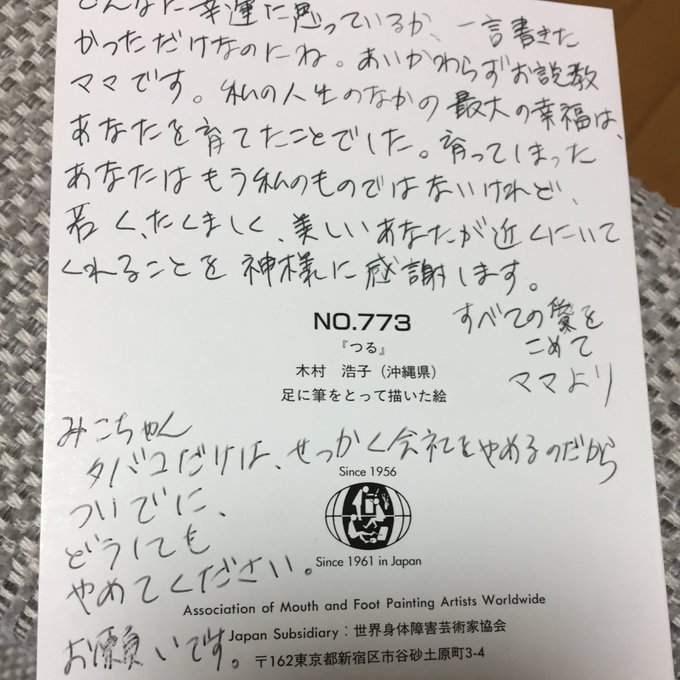 どんなに幸運に思っているか、一言書きた
かっただけなのにね。あいかわらずお説教
ママです。私の人生のなかの最大の幸福は、
あなたを育てたことでした。育ってしまった
あなたはもう私のものではないけれど、
若く、たくましく、美しいあなたが近くにいて
くれることを神様に感謝します。
すべての愛を
こめて
ママより
NO.773
『つる』
木村 浩子（沖縄県）
足に筆をとって描いた絵
みこちゃん
タバコだけは、せっかく会社をやめるのだから
ついでに、
どうしても
やめてください。
お願いです。
Since 1956
Since 1961 in Japan
Association of Mouth and Foot Painting Artists Worldwide
Japan Subsidiary：世界身体障害芸術家協会
〒162東京都新宿区市谷砂土原町3-4